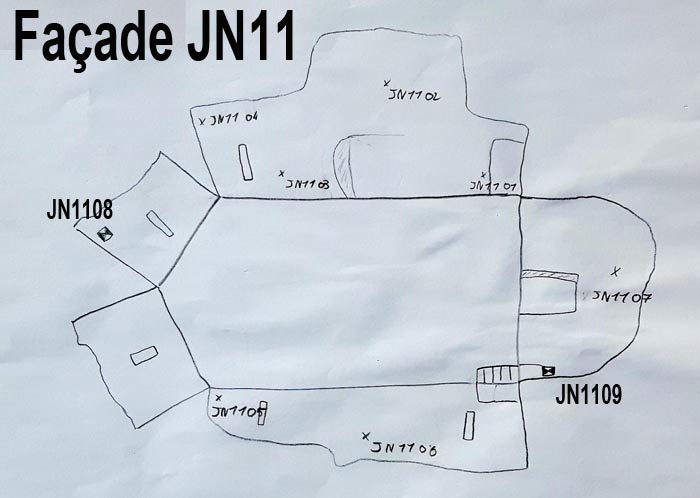 Façade JN11
JN1102
JN11 04
JN1103
JN1101
JN1108
JN1107
JN1109
JN1105
JN1106